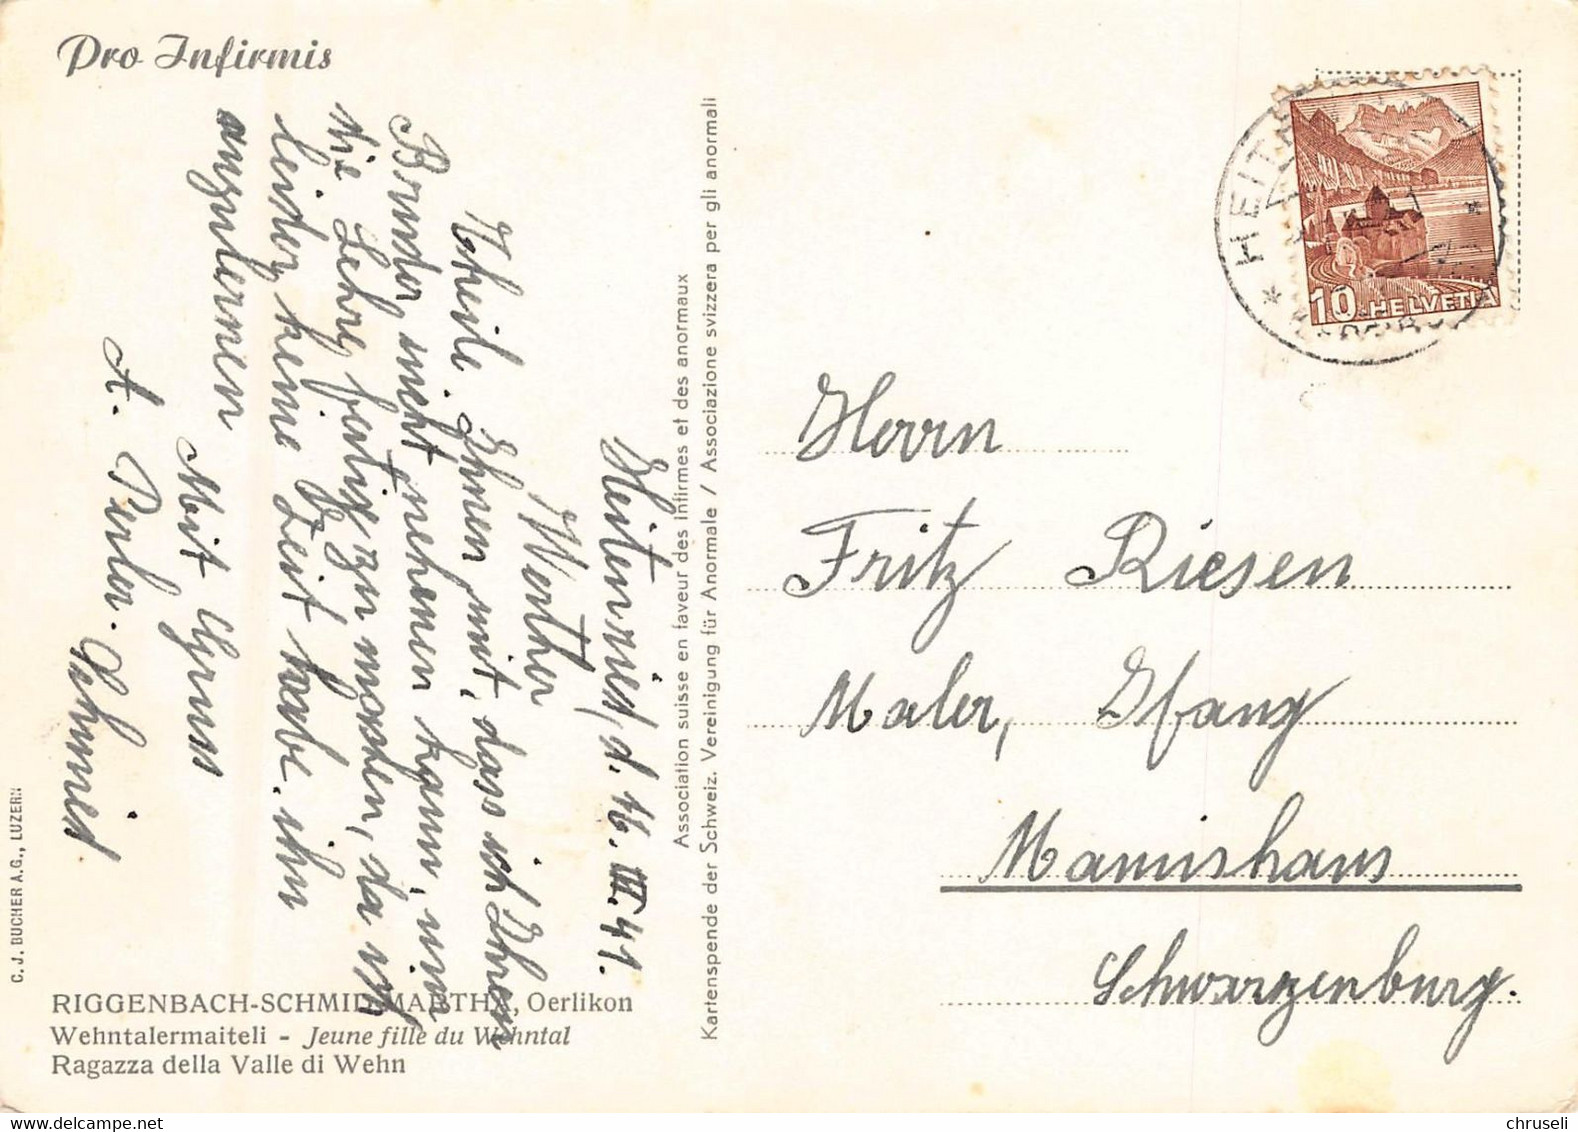 Pro Infirmis
Heitenried, d. 16. III. 41.
Werther
Theile Ihnen mit, dass ich Ihren
Bruder nicht nehmen kann, um
die Lehre fertig zu machen, da ich
leider keine Zeit habe, ihn
anzulernen
Mit Gruss
A. Perler-Schmid
RIGGENBACH-SCHMID MARTHA, Oerlikon
Wehntalermaiteli - Jeune fille du Wehntal
Ragazza della Valle di Wehn
C. J. BUCHER A.G., LUZERN
Association suisse en faveur des infirmes et des anormaux
Kartenspende der Schweiz. Vereinigung für Anormale / Associazione svizzera per gli anormali
HEIT
10 HELVETIA
Herrn
Fritz Riesen
Maler, Ifang
Mamishaus
Schwarzenburg.
chruseli